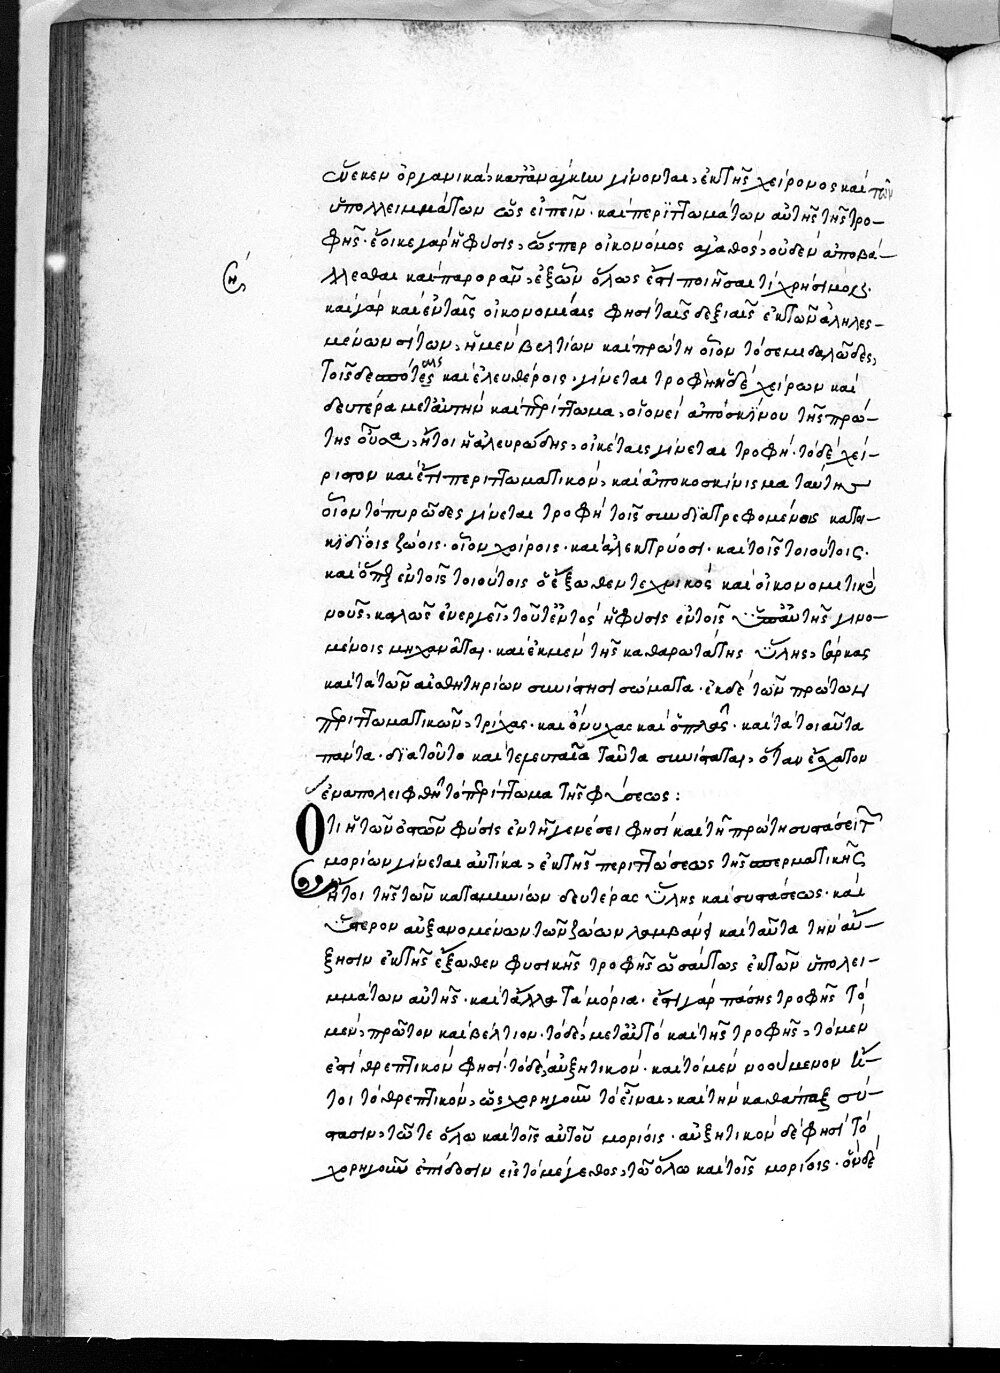 οὕνεκεν ὀργανικά, κατ' ἀνάγκην γίνονται, ἐκ τῆς χείρονος καὶ τῶν
ὑπολλειμμάτων ὡς εἰπεῖν· καὶ περιττωμάτων αὐτῆς τῆς τρο-
φῆς· ἔοικε γὰρ ἡ φύσις, ὥσπερ οἰκονόμος ἀγαθός, οὐδὲν ἀποβά-
λλεσθαι καὶ παρορᾶν, ἐξ ὧν ὅλως ἐστὶ ποιῆσαι τὶ χρήσιμον·
καὶ γὰρ καὶ ἐν ταῖς οἰκονομίαις φησὶ ταῖς δεξιαῖς ἐκ τῶν ἀληλες-
μένων σίτων, ἡ μὲν βελτίων καὶ πρώτη οἷον τὸ σεμιδαλῶδες,
τοῖς δεσπόταις καὶ ἐλευθέροις, γίνεται τροφὴ· ἡ δὲ χείρων καὶ
δευτέρα μετ' αὐτὴν καὶ περίττωμα, οἱονεὶ ἀπὸ σκίνου τῆς πρώ-
της οὖσα, ἤτοι ἡ ἀλευρώδης, οἰκέταις γίνεται τροφή· τὸ δὲ χεί-
ριστον καὶ ἔτι περιττωματικὸν, καὶ ἀποκοσκίνισμα ταύτης
οἷον τὸ πυρῶδες γίνεται τροφὴ τοῖς συνδιατρεφομένοις κατοι-
κιδίοις ζώοις· οἷον χοίροις· καὶ ἀλεκτρύοσι· καὶ τοῖς τοιούτοις·
καὶ ὅπερ ἐν τοῖς τοιούτοις ὁ ἔξωθεν τεχνικὸς καὶ οἰκονομητικὸς
νοῦς, καλῶς ἐνεργεῖ, τοῦτ' ἐντὸς ἡ φύσις ἐν τοῖς ὑπ' αὐτῆς γινο-
μένοις μηχανᾶται· καὶ ἐκ μὲν τῆς καθαρωτάτης ὕλης, σάρκας
καὶ τὰ τῶν αἰσθητηρίων συνίστησι σώματα· ἐκ δὲ τῶν πρώτων
περιττωματικῶν, τρίχας· καὶ ὄνυχας καὶ ὁπλὰς· καὶ τὰ τοιαῦτα
πάντα· διὰ τοῦτο καὶ τελευταῖα ταῦτα συνίσταται, ὅταν ἔσχατον
ἐναπολειφθῇ τὸ περίττωμα τῆς φύσεως:
Ὅτι ἡ τῶν ὀστῶν φύσις ἐν τῇ γενέσει φησὶ καὶ τῇ πρώτῃ συστάσει τῶν
μορίων γίνεται αὐτίκα, ἐκ τῆς περιττώσεως τῆς σπερματικῆς
ἤτοι τῆς τῶν καταμηνίων δευτέρας ὕλης καὶ συστάσεως· καὶ
ὕστερον αὐξανομένων τῶν ζώων λαμβάνει καὶ ταῦτα τὴν αὔ-
ξησιν ἐκ τῆς ἔξωθεν φυσικῆς τροφῆς ὡσαύτως ἐκ τῶν ὑπολει-
μμάτων αὐτῆς· καὶ τἄλλα τὰ μόρια· ἔστι γὰρ πάσης τροφῆς τὸ
μέν, πρῶτον καὶ βέλτιον· τὸ δέ, μετ' αὐτὸ καὶ τῆς τροφῆς, τὸ μὲν
ἐστὶ θρεπτικὸν φησί· τὸ δέ, αὐξητικόν· καὶ τὸ μὲν νοούμενον ἤ-
τοι τὸ θρεπτικὸν, ὡς χορηγοῦν τὸ εἶναι, καὶ τὴν καθάπαξ σύ-
στασιν, τῷ τε ὅλω καὶ τοῖς αὐτοῦ μορίοις· αὐξητικὸν δέ φησι τὸ
χορηγοῦν ἐπίδοσιν εἰς τὸ μέγεθος, τῷ ὅλω καὶ τοῖς μορίοις· ὃ οὐδὲ